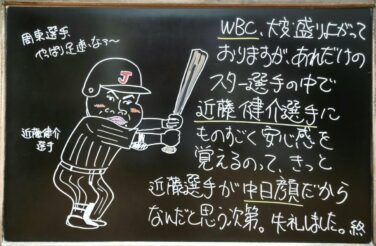 周東選手、
やっぱり足速いなァ〜
J
近藤健介
選手
WBC、大変盛り上がって
おりますが、あれだけの
スター選手の中で
近藤健介選手に
ものすごく安心感を
覚えるのって、きっと
近藤選手が中日顔だから
なんだと思う次第。失礼しました。終